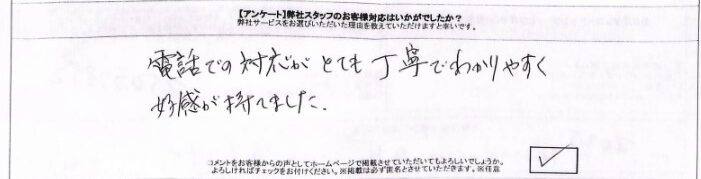 【アンケート】弊社スタッフのお客様対応はいかがでしたか？
弊社サービスをお選びいただいた理由を教えていただけますと幸いです。
電話での対応がとても丁寧でわかりやすく
好感が持てました.
コメントをお客様からの声としてホームページで掲載させていただいてもよろしいでしょうか。
よろしければチェックをお付けください。※掲載は必ず匿名とさせていただきます。※任意